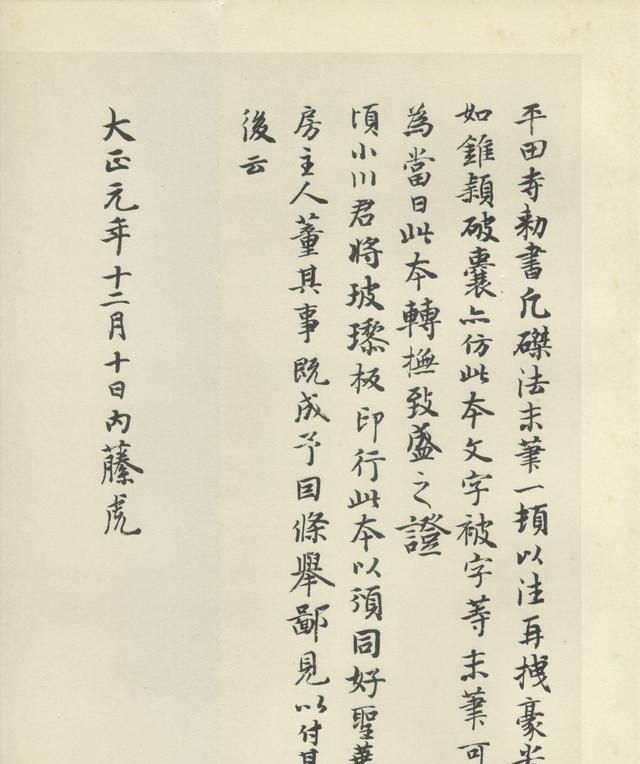 平田寺勅書凡磔法末筆一頓以注再拽豪
如錐穎破囊亦仿此本文字被字等末筆可
為當日此本轉撫致盛之證
頃小川君將玻瓈板印行此本以頒同好聖華
房主人董其事既成予因條舉鄙見以付其
後云
大正元年十二月十日内藤虎